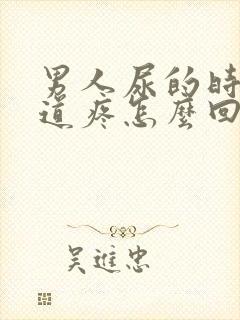 男人尿的時
道疼怎麼回
吴進忠